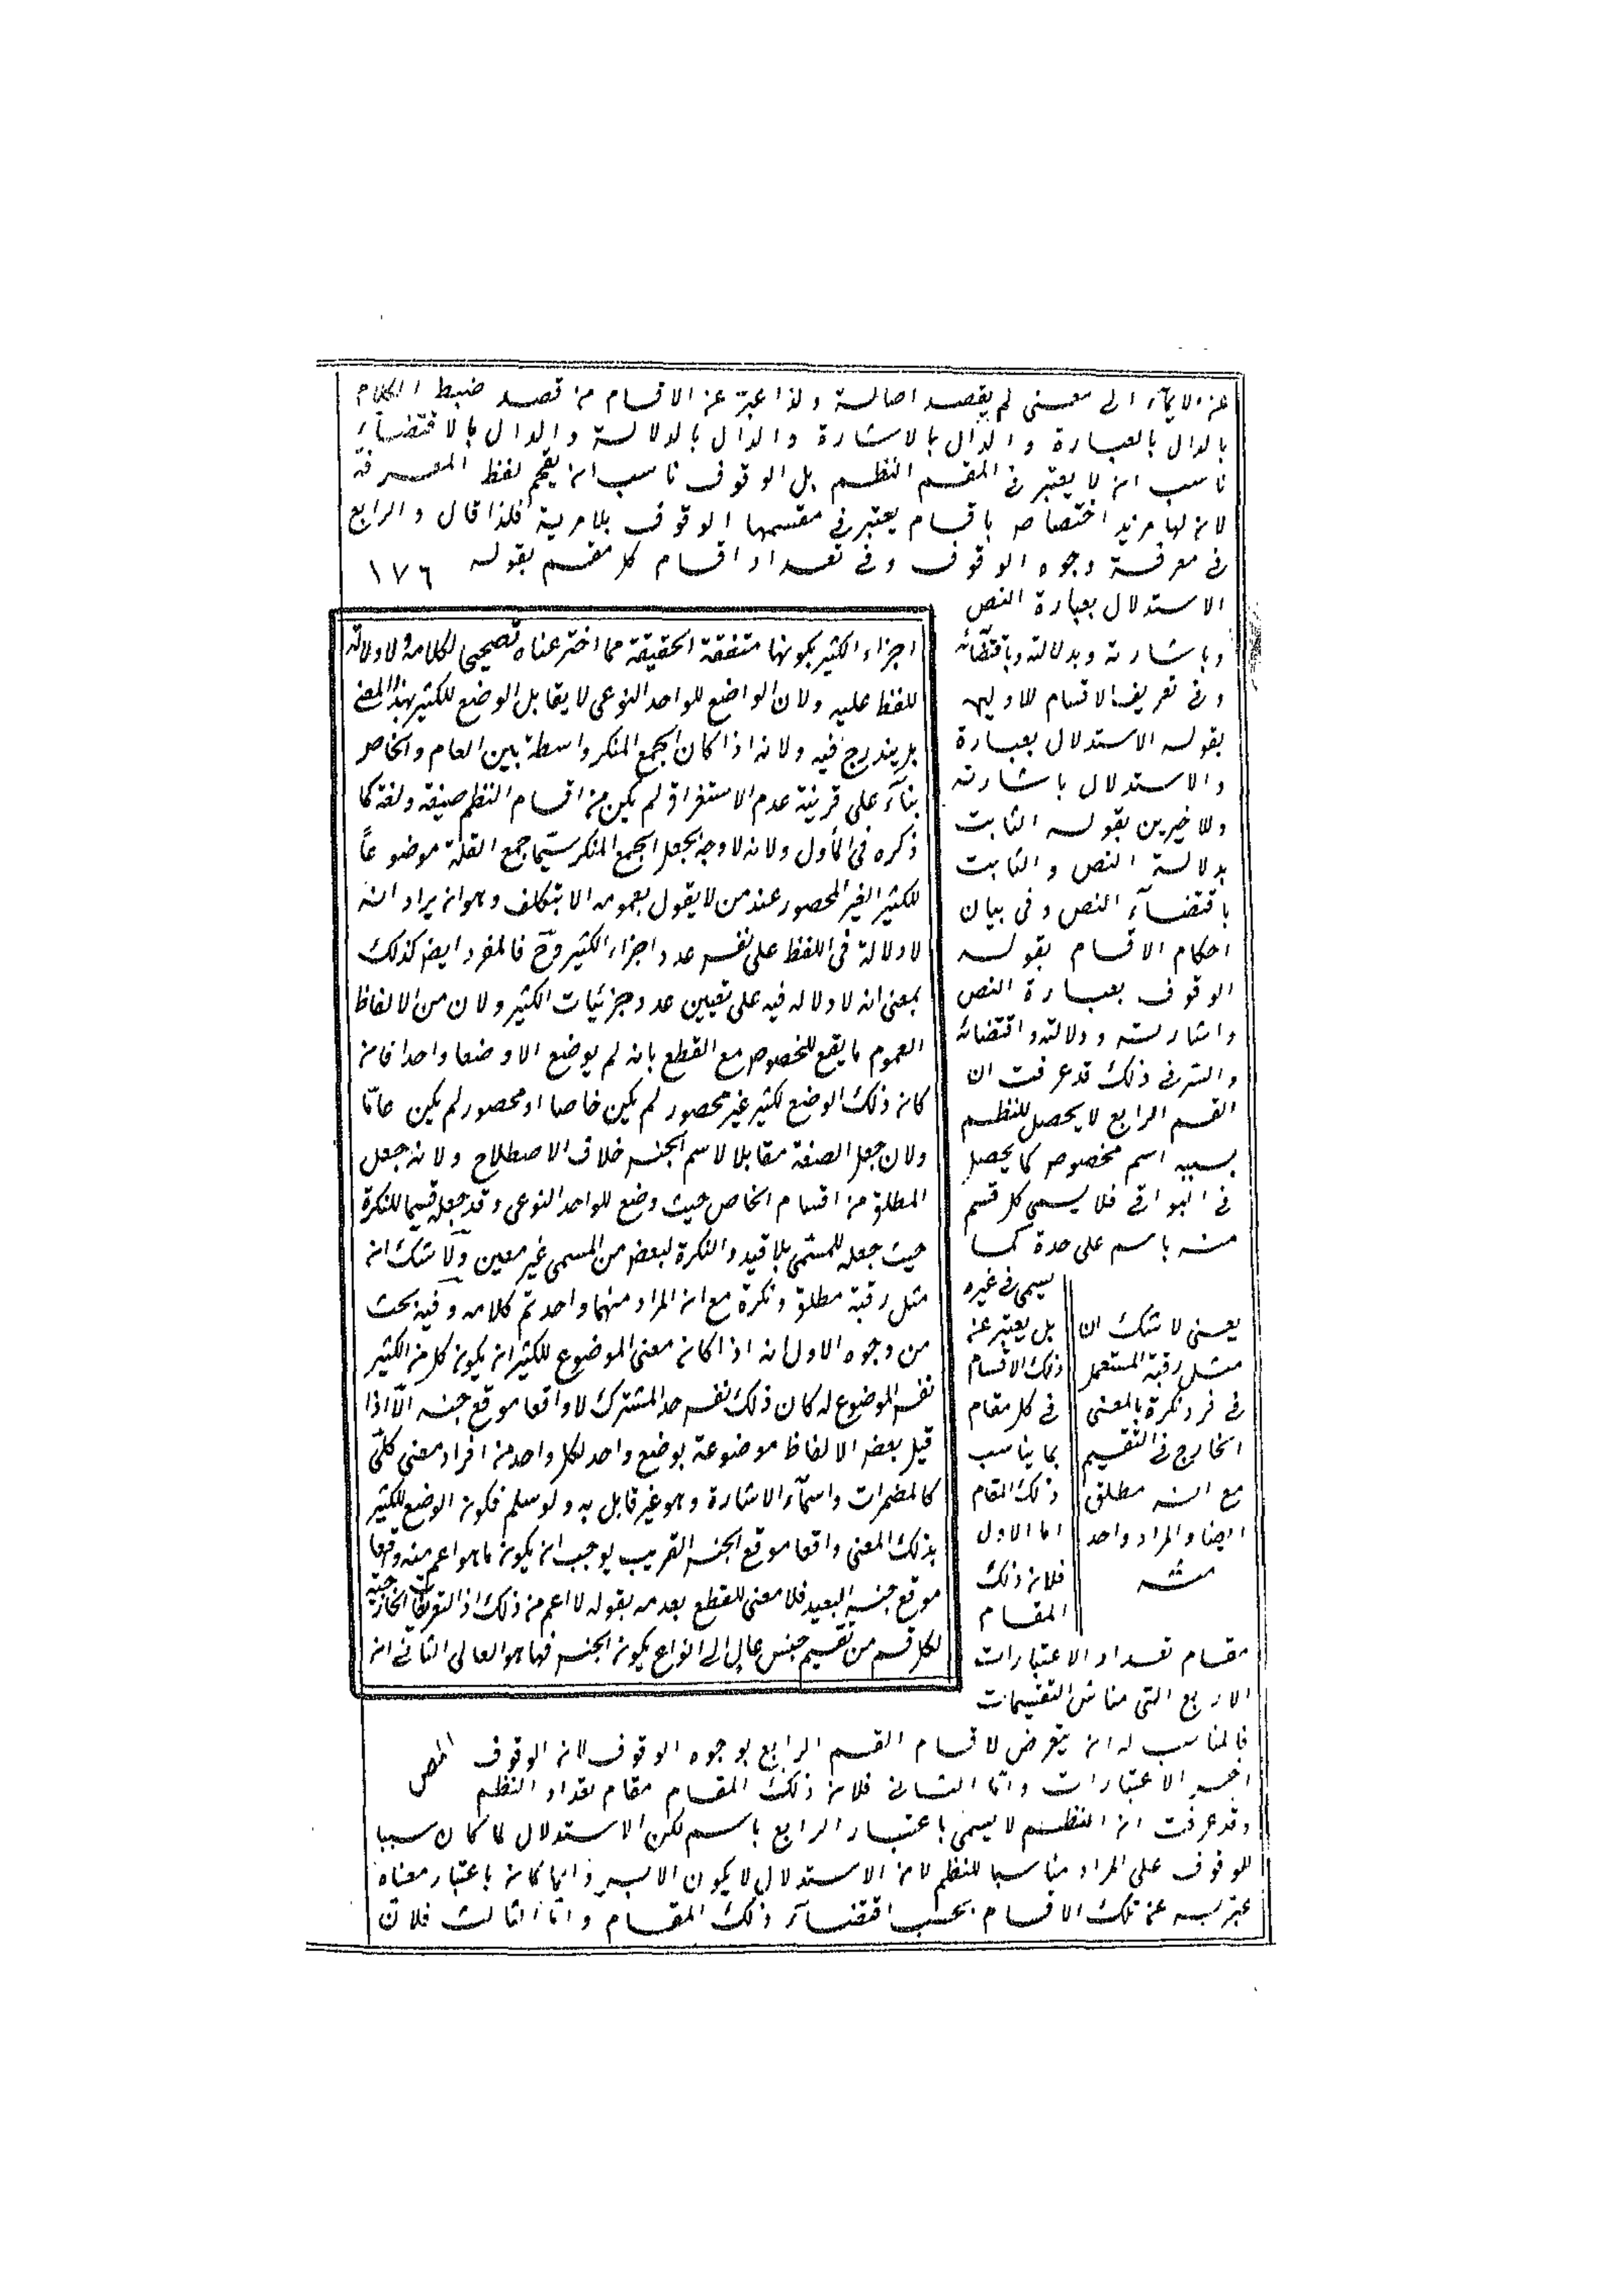 عن الايماء الى معنى لم يقصد اصالة ولذا عبر عن الاقسام من قصد ضبط الكلام
بالدال بالعبارة والدال بالاشارة والدال بالدلالة والدال بالاقتضاء
ناسب ان لا يعتبر فى المقسم النظم بل الوقوف ناسب ان يقحم لفظ المعرفة
لان لها مزيد اختصاص باقسام يعتبر فى مقسمها الوقوف بلا مرية فلذا قال والرابع
فى معرفة وجوه الوقوف وفى تعداد اقسام كل مقسم بقوله ١٧٦
الاستدلال بعبارة النص
وباشارته وبدلالته وباقتضائه
وفى تعريف الاقسام للاوليين
بقوله الاستدلال بعبارة
والاستدلال باشارته
وللاخيرين بقوله الثابت
بدلالة النص والثابت
باقتضاء النص وفى بيان
احكام الاقسام بقوله
الوقوف بعبارة النص
واشارته ودلالته واقتضائه
والسر فى ذلك قد عرفت ان
القسم الرابع لا يحصل للنظم
بسببه اسم مخصوص كما يحصل
فى البواقى فلا يسمى كل قسم
منه باسم على حدة كما
يسمى فى غيره
بل يعتبر عن
ذلك الاقسام
فى كل مقام
بما يناسب
ذلك المقام
اما الاول
فلان ذلك
المقام
مقام تعداد الاعتبارات
الاربع التى مناش التقسيمات
فالمناسب له ان يتعرض لاقسام القسم الرابع بوجوه الوقوف لان الوقوف
اخص الاعتبارات واما الثانى فلان ذلك المقام مقام تعداد النظم
وقد عرفت ان النظم لا يسمى باعتبار الرابع باسم لكن الاستدلال لما كان سببا
للوقوف على المراد مناسبا للنظم لان الاستدلال لا يكون الا به وانما كان باعتبار معناه
عبر به عن تلك الاقسام بحسب اقتضاء ذلك المقام واما الثالث فلان
يعنى لا شك ان
مثل رقبة المستعمل
فى فرد نكرة بالمعنى
الخارج فى التقسيم
مع انه مطلق
ايضا والمراد واحد
منه
اجزاء الكثير بكونها متفقة الحقيقة مما اخترعناه تصحيحا لكلامه ولا دلالة
للفظ عليه ولان الواضع للواحد النوعى لا يقابل الوضع للكثير بهذا المعنى
بل يندرج فيه ولانه اذا كان الجمع المنكر واسطة بين العام والخاص
بناء على قرينة عدم الاستغراق لم يكن من اقسام النظم صيغة ولغة كما
ذكره فى المأول ولانه لا وجه لجعل الجمع المنكر سيما جمع القلة موضوعاً
للكثير الغير المحصور عند من لا يقول بعمومه الا بتكلف وهو ان يراد انه
لا دلالة فى اللفظ على نفس عدد اجزاء الكثير وح فالمفرد ايضا كذلك
بمعنى انه لا دلالة فيه على تعيين عدد جزئيات الكثير ولان من الالفاظ
العموم ما يقع للخصوص مع القطع بانه لم يوضع الا وضعا واحدا فان
كان ذلك الوضع لكثير غير محصور لم يكن خاصا او محصور لم يكن عامّا
ولان جعل الصفة مقابلا لاسم الجنس خلاف الاصطلاح ولانه جعل
المطلق من اقسام الخاص حيث وضع للواحد النوعى وقد جعله قسيما للنكرة
حيث جعله للمسمى بلا قيد والنكرة لبعض من المسمى غير معين ولا شك ان
مثل رقبة مطلق ونكرة مع ان المراد منهما واحد تم كلامه وفيه بحث
من وجوه الاول انه اذا كان معنى الموضوع للكثير ان يكون كل من الكثير
نفس الموضوع له كان ذلك نفس حد المشترك لا واقعا موقع جنسه الّا اذا
قيل بعض الالفاظ موضوعة بوضع واحد لكل واحد من افراد معنى كلّى
كالمضمرات واسماء الاشارة وهو غير قابل به ولو سلم فكون الوضع للكثير
بذلك المعنى واقعا موقع الجنس القريب يوجب ان يكون ما هو اعم منه واقعا
موقع جنسه البعيد فلا معنى للقطع بعدمه بقوله لا اعم من ذلك اذ التعريفات الخارجية
لكل قسم من تقسيم جنس عال الى انواع يكون الجنس فيها هو العالى الثانى ان